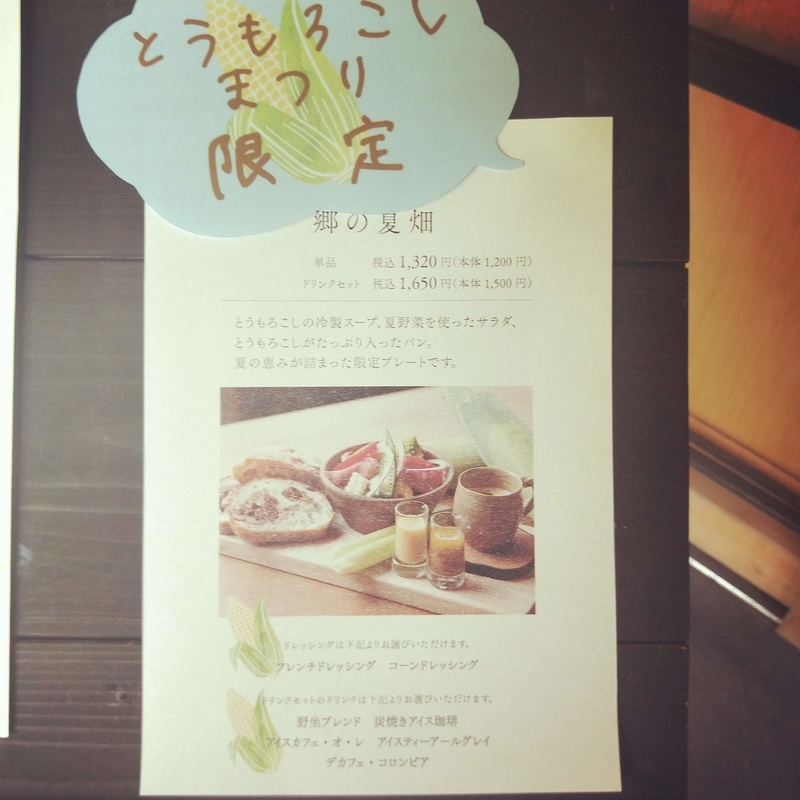 とうもろこし
まつり
限定
郷の夏畑
単品 税込 1,320 円(本体 1,200 円)
ドリンクセット 税込 1,650 円(本体 1,500 円)
とうもろこしの冷製スープ、夏野菜を使ったサラダ、
とうもろこしがたっぷり入ったパン。
夏の恵みが詰まった限定プレートです。
ドレッシングは下記よりお選びいただけます。
フレンチドレッシング コーンドレッシング
ドリンクセットのドリンクは下記よりお選びいただけます。
野坐ブレンド 炭焼きアイス珈琲
アイスカフェ・オ・レ アイスティーアールグレイ
デカフェ・コロンビア